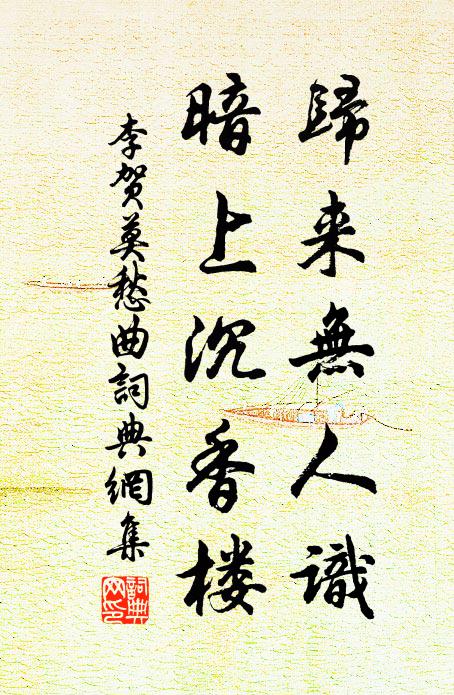 歸来無人識
暗上沉香楼
李贺莫愁曲詞典網集
詞典
网印